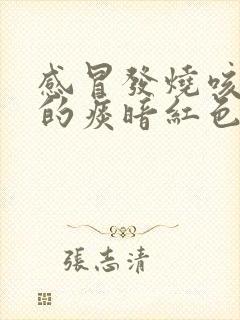 感冒發燒咳
的痰暗紅色
張志清